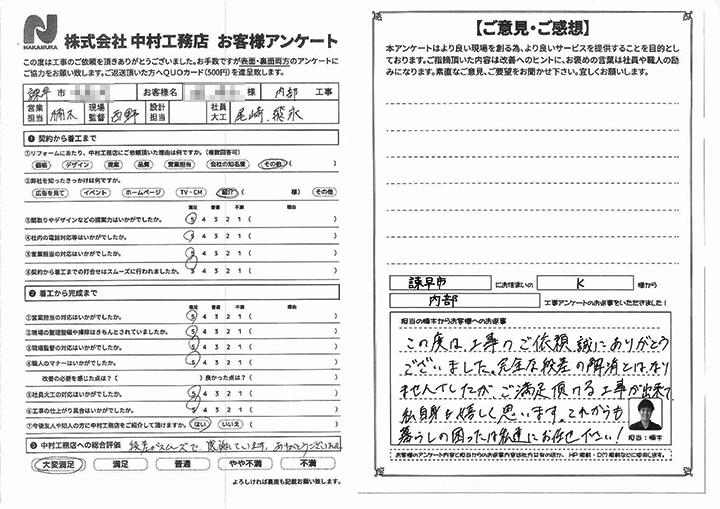 NAKAMURA
株式会社 中村工務店 お客様アンケート
この度は工事のご依頼を頂きありがとうございました。お手数ですが表面・裏面両方のアンケートに
ご協力をお願い致します。ご返送頂いた方へQUOカード(500円)を進呈致します。
諫早 市 お客様名 様 内部 工事
営業担当 楠本 現場監督 西野 設計担当 社員大工 尾崎、
❶ 契約から着工まで
①リフォームにあたり、中村工務店にご依頼頂いた理由は何ですか。(複数回答可)
価格 デザイン 提案 品質 営業担当 会社の知名度 その他( )
②弊社を知ったきっかけは何ですか。
広告を見て イベント ホームページ TV・CM 紹介( 様) その他
満足 普通 不満 理由
③間取りやデザインなどの提案力はいかがでしたか。 5 4 3 2 1 ( )
④社内の電話対応等はいかがでしたか。 5 4 3 2 1 ( )
⑤営業担当の対応はいかがでしたか。 5 4 3 2 1 ( )
⑥契約から着工までの打合せはスムーズに行われましたか。 5 4 3 2 1 ( )
❷ 着工から完成まで
満足 普通 不満 理由
①営業担当の対応はいかがでしたか。 5 4 3 2 1 ( )
②現場の整理整頓や掃除はきちんとされていましたか。 5 4 3 2 1 ( )
③現場監督の対応はいかがでしたか。 5 4 3 2 1 ( )
④職人のマナーはいかがでしたか。 5 4 3 2 1 ( )
改善の必要を感じた点は?( ) 良かった点は?( )
⑤社員大工の対応はいかがでしたか。 5 4 3 2 1 ( )
⑥工事の仕上がり具合はいかがでしたか。 5 4 3 2 1 ( )
⑦今後友人や知人の方に中村工務店をご紹介して頂けますか。 はい いいえ ( )
❸ 中村工務店への総合評価 段差がスムーズで、感謝しています。ありがとうございました
大変満足 満足 普通 やや不満 不満
よろしければ裏面も記載お願い致します。
【ご意見・ご感想】
本アンケートはより良い現場を創る為、より良いサービスを提供することを目的とし
ております。ご指摘頂いた内容は改善へのヒントに、お褒めの言葉は社員や職人の励
みになります。素直なご意見、ご要望をお聞かせ下さい。宜しくお願いします。
諫早市 にお住まいの K 様から
内部 工事アンケートのお返事をいただきました!
担当の楠本からお客様へのお返事
この度は、工事のご依頼誠にありがとう
ございました。完全な段差の解消とはなり
ませんでしたが、ご満足頂ける工事が出来て
私自身も嬉しく思います。これからも
暮らしの困ったは私達にお任せ下さい!
担当:楠本
お客様のアンケート内容と担当からのお返事内容は社内共有のほか、HP掲載・DM掲載などに使用します。